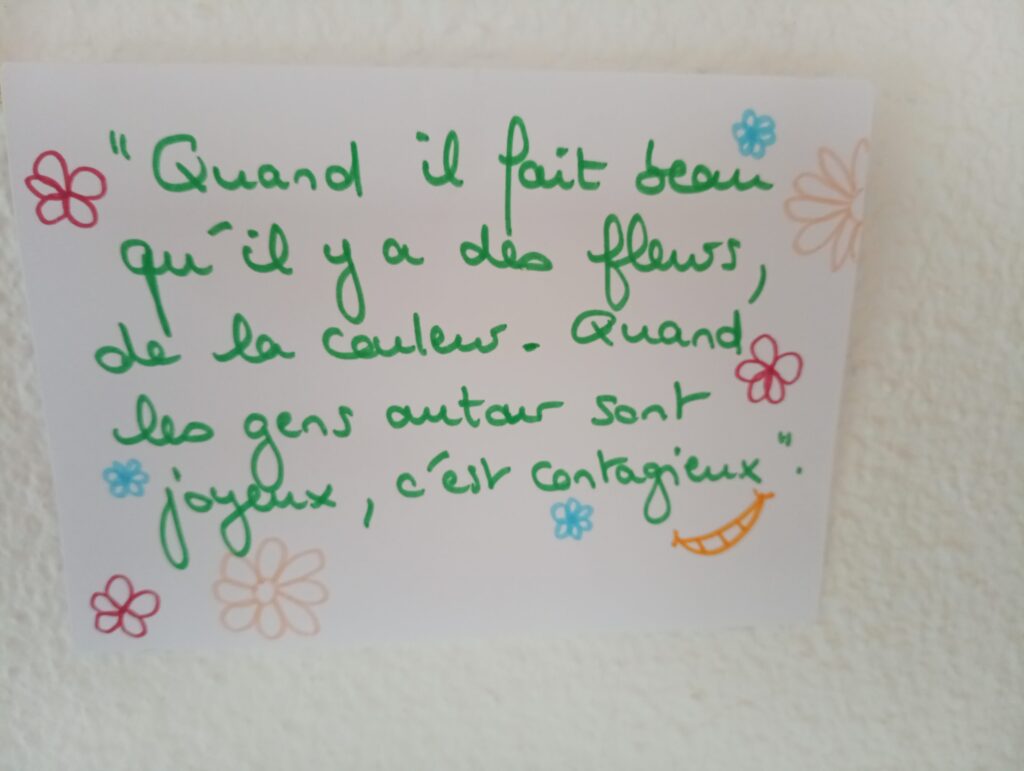 "Quand il fait beau
qu'il y a des fleurs,
de la couleur. Quand
les gens autour sont
joyeux, c'est contagieux".